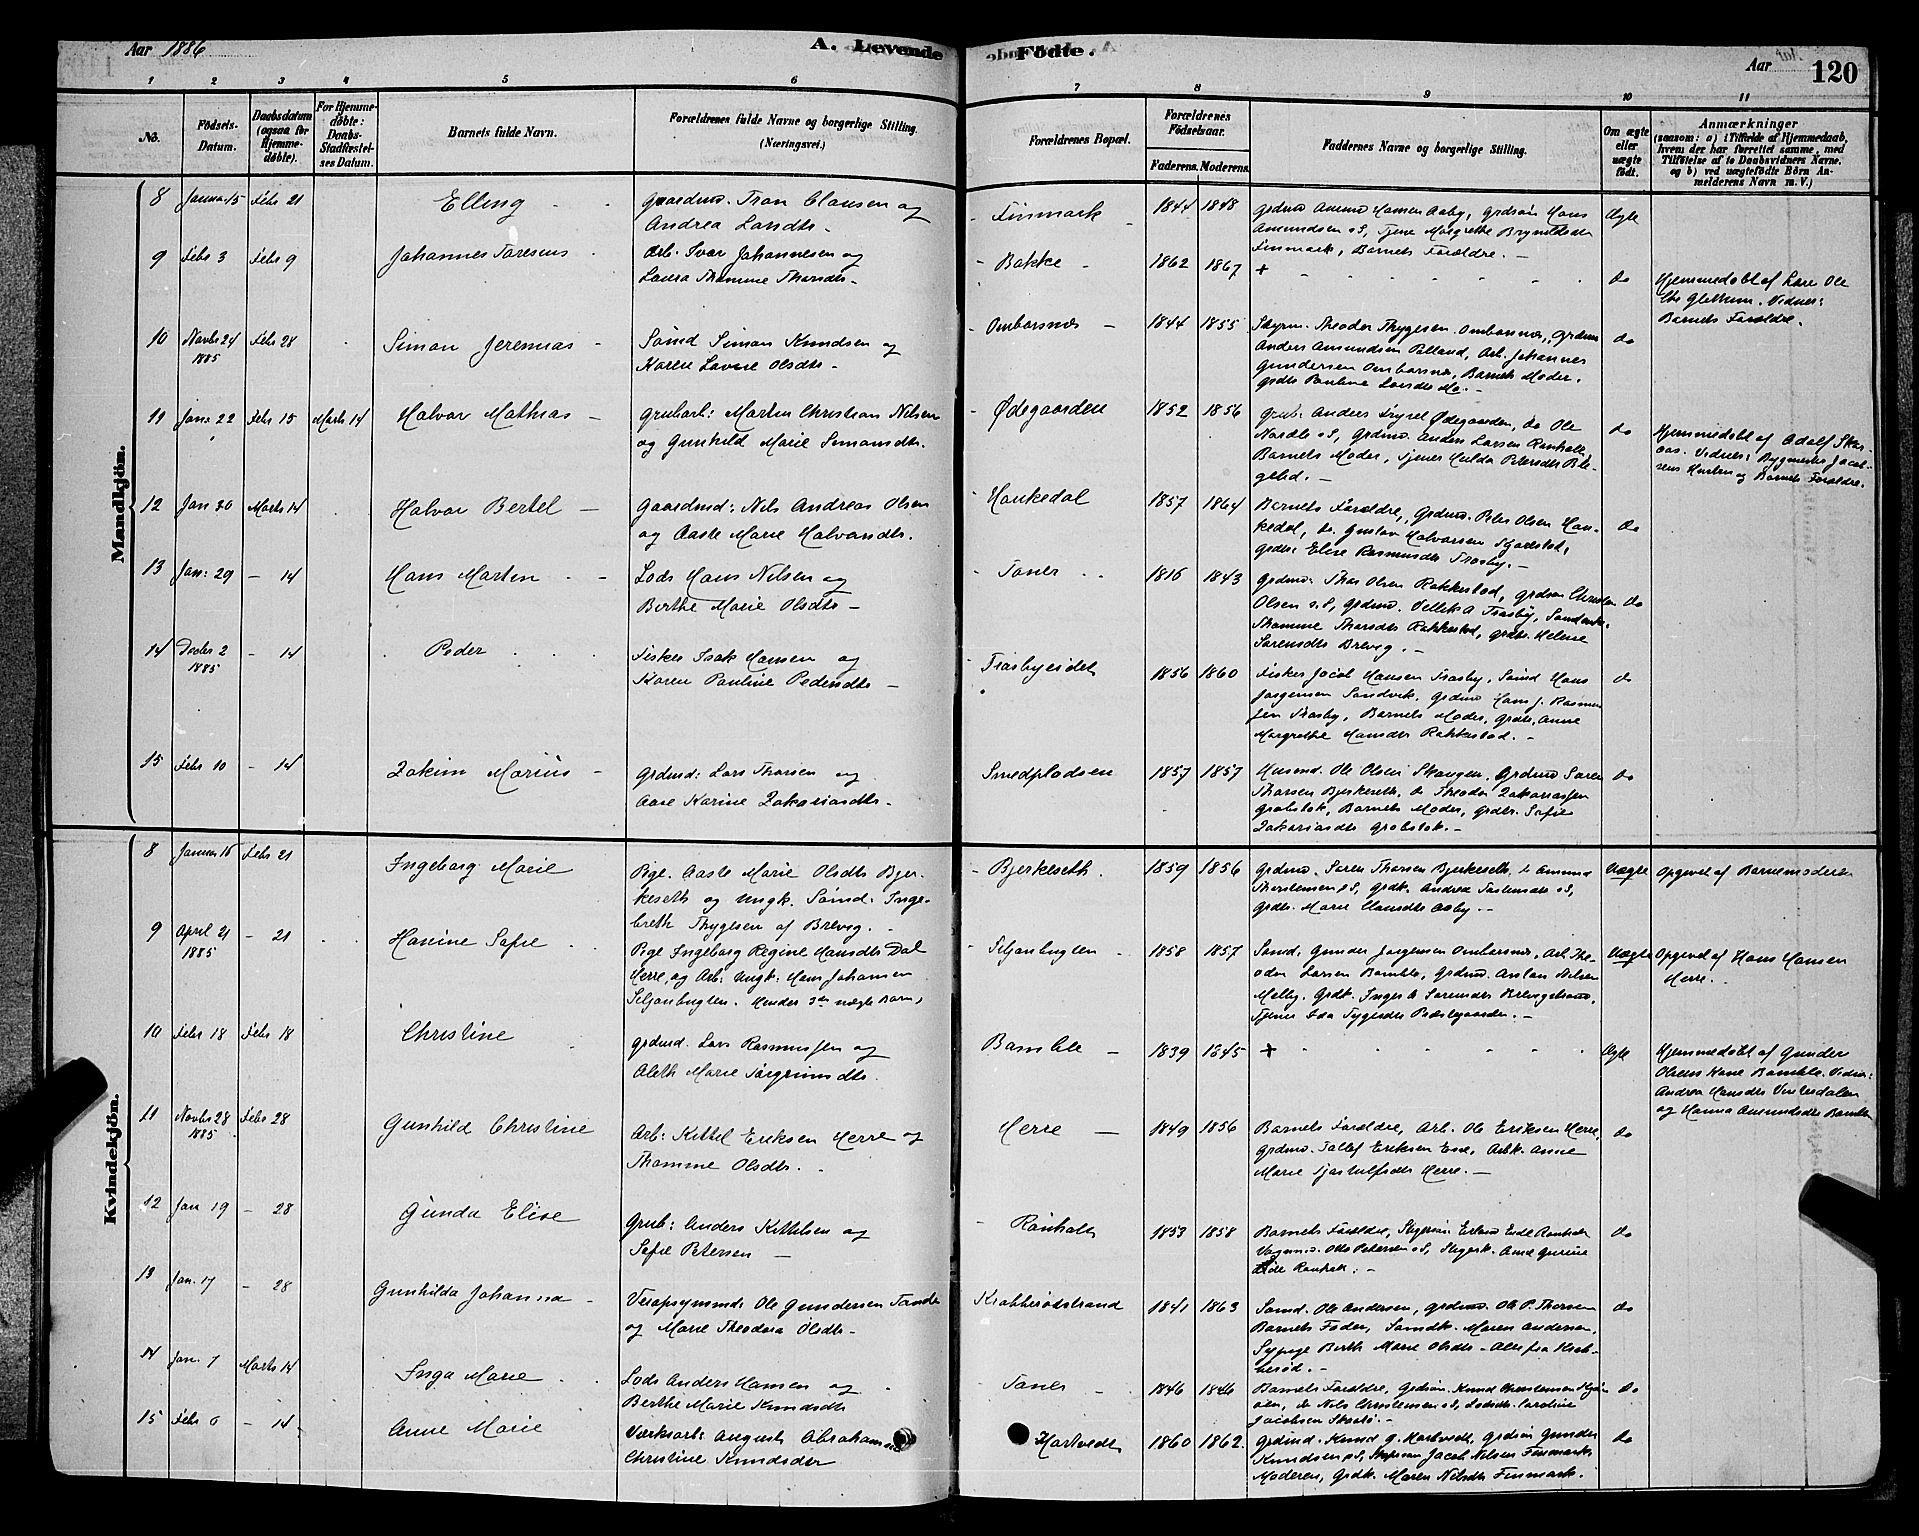 Aar 1886
A. Levende Födte.
Aar 120
1 2 3 4 5 6 7 8 9 10 11
No.
Födsels-Datum.
Daabsdatum (ogsaa for Hjemme-døbte).
For Hjemme-døbte: Daabs-Stadfæstel-ses Datum.
Barnets fulde Navn.
Forældrenes fulde Navne og borgerlige Stilling. (Næringsvei.)
Forældrenes Bopæl.
Forældrenes Födselsaar.
Faderens. Moderens.
Faddernes Navne og borgerlige Stilling.
Om ægte eller uægte födt.
Anmærkninger
(saasom: a) i Tilfælde af Hjemmedaab,
hvem der har forrettet samme, med
Tilföielse af to Daabsvidners Navne.
og b) ved uægtefödte Börn An-
melderens Navn m. V.)
Mandkjön.
8 Janua 15 Febr 21 Elling
Gaardmd. Tron Clausen og
Andrea Larsdtr.
Finmark 1844 1848
Grdmd Amund Hansen Aaby, Grdsön Hans
Amundsen s S, Tjene Margrethe Brynildsdr
Finmark, Barnets Forældre.
Ægte
9 Febr 3 Febr 9 Johannes
Arb. Ivar Johannesen og
Laura Thomine Thorsdtr
Bakke 1862 1867 +
do
Hjemmedøbt af Lars Ole
Vidner:
Barnets Forældre.
10 Novbr 24 1885 Febr 28 Simon Jeremias
Sømd Simon Knudsen og
Karen Lovise Olsdtr
Omborsnes 1844 1855
Styrm. Theodor Thygesen Omborsnes, Grdmd
Anders Amundsen Arb. Johannes
Gundersen Omborsnes, Barnets Moder,
Grdtr Pauline
do
11 Janu 22 Febr 15 Marts 14 Halvor Mathias
Grubarb: Martin Christian Nilsen
og Gunhild Marie Simonsdtr.
Ødegaarden 1852 1856
Grub. Anders Ødegaarden, do Ole
s S, Grdmd. Anders Larsen Rønholt,
Barnets Moder, Tjener Hulda Petersdtr
do
Hjemmedøbt af Adolf
Vidner: Bygmester Jacob-
sens Hustru og Barnets Forældre.
12 Jan 20 Marts 14 Halvor Bertel
Gaardmd: Nils Andreas Olsen
og Aaste Marie Halvorsdtr.
Hankedal 1857 1864
Barnets Forældre, Grdmd. Peter Olsen Han-
kedal, do. Gustav Halvorsen
Grdtr. Elise Rasmusdtr Trosby.
do
13 Jan: 29 - 14 Hans Martin
Lods Hans Nilsen og
Berthe Marie Olsdtr
Toner 1816 1843
Grdmd. Thor Olsen Rakkestad, Grdsøn Christen
Olsen s. S, Grdmd. Trosby,
Thomine Thorsdtr Rakkestad, Grdtr. Helene
Sørensdtr Brevig.
do
14 Decbr 2 1885 - 14 Peder
Fisker Isak Hansen og
Karen Pauline Pedersdtr
Trosbyeidet 1856 1860
Fisker Jacob Hansen Trosby, Sømd Hans
Jørgensen Sandvik, Grdmd Hans J. Rasmus
sen Trosby, Barnets Moder, Grdtr. Anne
Margrethe Hansdtr Rakkestad.
do
15 Febr 10 - 14 Zakim Marius
Grdmd: Lars Thorsen og
Aase Karine Zakariasdtr.
Smedpladsen 1857 1857
Husmd. Ole Olsen Skaugen, Grdmd Søren
Thorsen Bjerkeseth, do Theodor Zakariassen
Grobstok, Barnets Moder, Grdtr. Sofie
Zakariasdtr Grobstok.
do
Kvindekjön.
8 Januar 16 Febr 21 Ingeborg Marie
Pige. Aaste Marie Olsdtr Bjer-
keseth og Ungk. Sømd. Inge-
breth Thygesen af Brevig.
Bjerkeseth. 1859 1856
Grdmd. Søren Thorsen Bjerkeseth, do Amund
Thorstensen s S, Grdk. Andrea s S,
Grdtr. Marie Hansdtr Aaby.
Uægte Opgivet af Barnemoderen
9 April 21 1885 - 21 Hanine Sofie
Pige Ingeborg Regine Hansdtr Dal
Herre, og Arb. Ungk. Hans Johansen
Siljanbugten. Hendes 3die uægte Barn,
Siljanbugten 1858 1857
Sømd. Gunder Jørgensen Ombersnes, Arb. The-
odor Larsen Bamble, Grdmd. Anton Nilsen
Melby, Grdk. Inger A Sørensdtr Brevigstrand,
Tjener Ida Tygesdtr Præstegaarden.
Uægte Opgivet af Hans Hansen
Herre.
10 Febr 18 Febr 18 Christine
Grdmd. Lars Rasmussen og
Aleth Marie Torgrimsdtr.
Bamble 1839 1845 +
Ægte
Hjemmedøbt af Gunder
Olsens Kone Bamble. Vidner:
Andrea Hansdtr Vinterdalen
og Hanna Amundsdtr Bamble
11 Novbr 28 1885 Febr 28 Gunhild Christine
Arb: Kittel Eriksen Herre og
Thomine Olsdtr.
Herre 1849 1856
Barnets Forældre, Arb. Ole Eriksen Herre,
Grdmd. Tallef Eriksen Eie, Arbk. Anne
Marie Herre.
do
12 Jan 19 - 28 Gunda Elise
Grub: Anders Kittelsen og
Sofie Petersen
Rønholt 1853 1858
Barnets Forældre, Erland Eide Rønholt
Otto Petersen s S, Anne Gurine
Eide Rønholt.
do
13 Jan. 17 - 28 Gunhilda Johanna
Ole Gundersen
og Marie Theodora Olsdtr
Krabberødstrand 1841 1863
Sømd. Ole Andersen, Grdmd. Ole P. Thorsen
Barnets Fader, Sømdk. Maren Andersen,
Sypige Berth Marie Olsdtr - Alle fra Krab-
berød.
do
14 Jan. 7 Marts 14 Inga Marie
Lods Anders Hansen og
Berthe Marie Knudsdtr
Toner 1846 1846
Barnets Forældre, Grdsøn. Knud Christensen
do Nils Christensen s S, Lodsdtr. Caroline
Jacobsen
do
15 Febr 6 - 14 Anne Marie
Værksarb: August Abrahamsen
Christine Knudsdtr
Hartvedt 1860 1862.
Grdmd. Knud G. Hartvedt, Grdsøn Gunder
Knudsen s S, Jacob Nilsen Finmark,
Moderen, Grdk. Maren Nilsdtr Finmark.
do